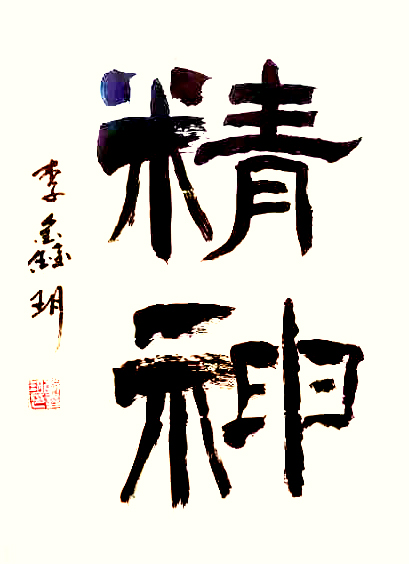 精神
李鑫玥